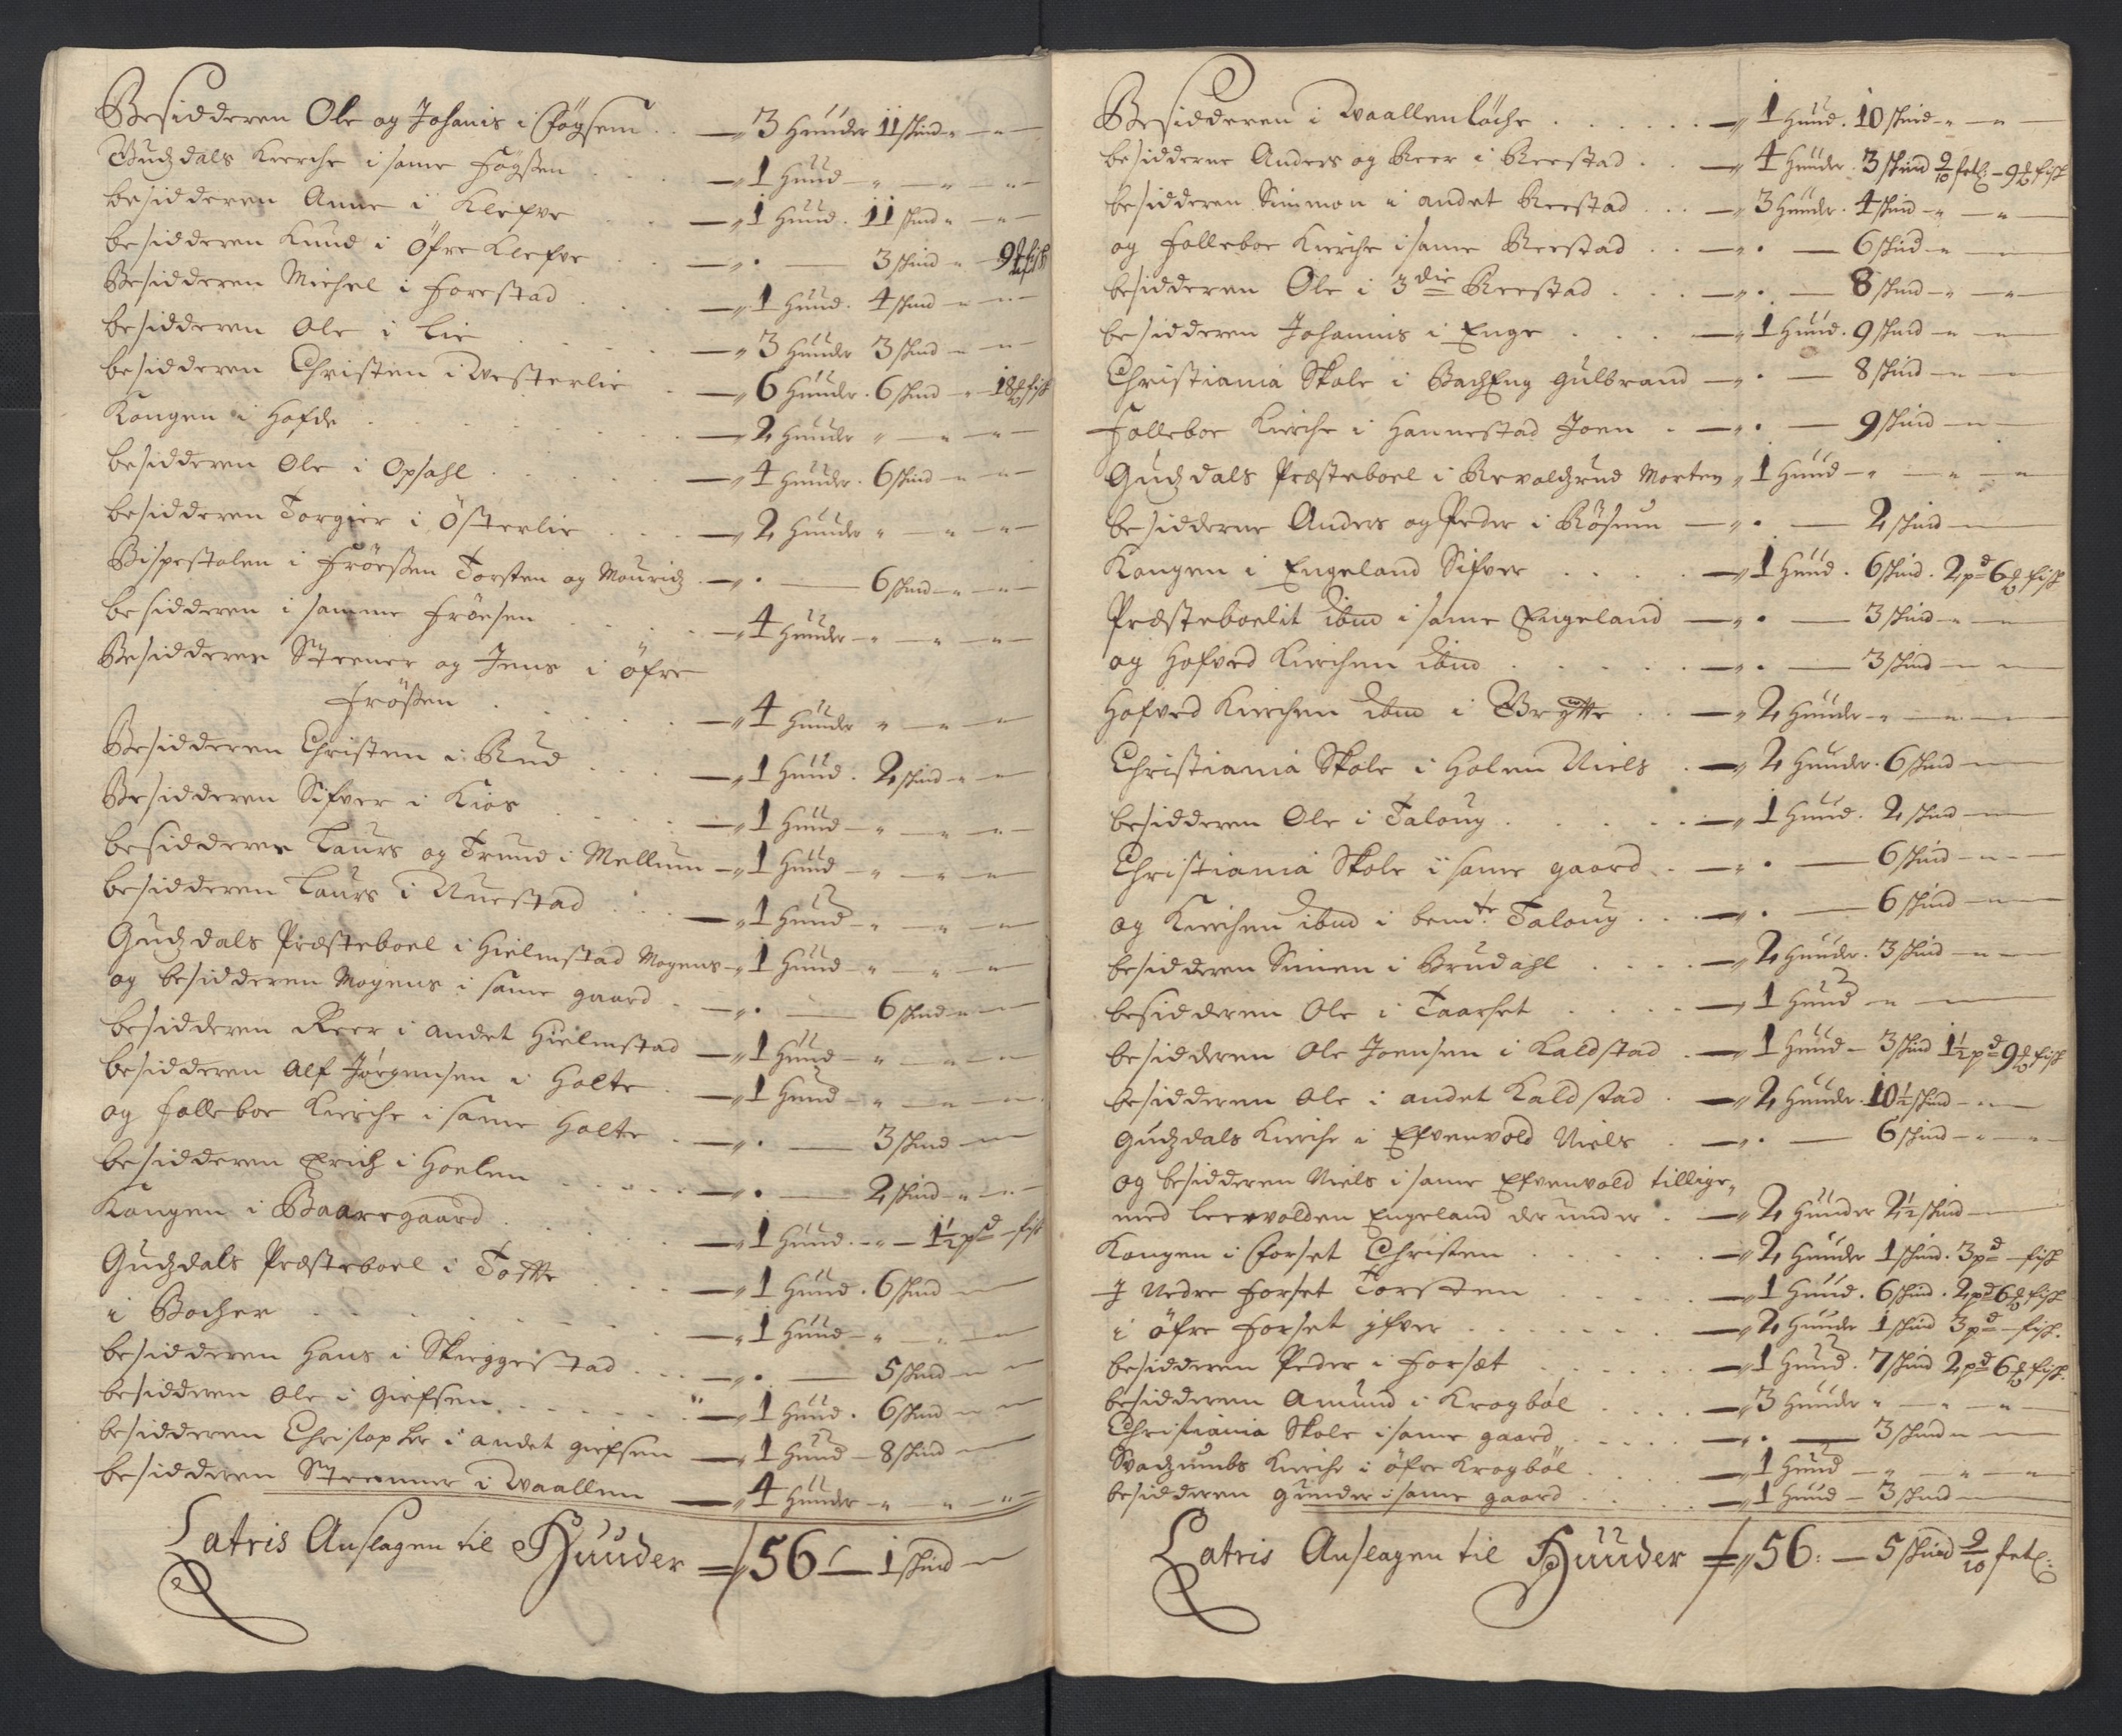 Besidderen Ole og Johanis i Fögsem . . — 3 Huuder 11 skind
Gudzdals Kierche i same Fögssen . . . — 1 Huud
besidderen Anne i Klefve . . — 1 Huud . 11 skind
besidderen Knud i Öfre Klefve . . — 3 skind — 9 fisk
Besidderen Michel i Forestad . . . — 1 Huud . 4 skind
besidderen Ole i Lie . . . — 3 Huuder 3 skind
besidderen Christen i Westerlie . — 6 Huuder . 6 skind — 18 fisk
Kongen i Hofde . . . — 2 Huuder
besidderen Ole i Opsahl . . . — 4 Huuder . 6 skind
besidderen Torgier i Österlie . . . — 2 Huuder
Bispestolen i Fröessen Torsten og Mouridz — 6 skind
besidderen i samme Fröesen . . . — 4 Huuder
Besidderen Steener og Jens i öfre
Frössen . . . — 4 Huuder
Besidderen Christen i Rud . . . — 1 Huud . 2 skind
Besidderen Sifver i Kiös . . . — 1 Huud
besidderen Laurs og Trund i Mellum — 1 Huud
besidderen Laurs i Nuestad . . . — 1 Huud
Gudzdals Præsteboel i Hielmstad Mogens — 1 Huud
og besidderen Mogens i same gaard . — 6 skind
besidderen Peer i andet Hielmstad — 1 Huud
besidderen Alf Jörgensen i Holte . — 1 Huud
og Folleboe Kierche i same Holte . — 3 skind
besidderen Erich i Hoelen . . . — 2 skind
Kongen i Baaregaard . . . — 1 Huud — 1½ pd fisk
Gudzdals Præsteboel i Tofte . . . — 1 Huud . 6 skind
i Bocher . . . — 1 Huud
besidderen Hans i Skieggestad . . . — 5 skind
besidderen Ole i Giefsen . . . — 1 Huud . 6 skind
besidderen Christopher i andet giefsen — 1 Huud — 8 skind
besidderen Steenner i Waallen — 4 Huuder
Latris Anslagen til Huuder — 56 — 1 skind
Besidderen i Waallenlöche . . . — 1 Huud . 10 skind
besidderne Anders og Peer i Reestad . . — 4 Huuder . 3 skind 9/10 fetl: — 9 fisk
besidderen Simmon i andet Reestad . . . — 3 Huuder . 4 skind
og Folleboe Kierche i same Reestad . . — 6 skind
besidderen Ole i 3die Reestad . . . — 8 skind
besidderen Johannis i Enge . . . — 1 Huud . 9 skind
Christiania Skole i BachEng Gulbrand — 8 skind
Folleboe Kierche i Hannestad Joen . — 9 skind
Gudzdals Præsteboel i Revoldzrud Morten 1 Huud
besidderne Anders og Peder i Rösum — 2 skind
Kongen i Engeland Sifver . . . — 1 Huud . 6 skind . 2 pd 6 fisk
Præsteboelit ibm i same Engeland — 3 skind
og Hofved Kirchen ibm . . . — 3 skind
Hofved Kirchen ibm i Brÿtte . . — 2 Huuder
Christiania Skole i Holen Niels . — 2 Huuder . 6 skind
besidderen Ole i Taloug . . . — 1 Huud . 2 skind
Christiania Skole i same gaard . — 6 skind
og Kirchen ibm i bemte Taloug . . . — 6 skind
besidderen Simen i Brudahl . . . — 2 Huuder . 3 skind
besidderen Ole i Taarset . . . — 1 Huud
besidderen Ole Joensen i Kaldstad . — 1 Huud — 3 skind 1½ pd 9 fisk
besidderen Ole i andet Kaldstad . — 2 Huuder . 10½ skind
Gudzdals Kirche i Efvenvold Niels . — 6 skind
og besidderen Niels i same Efvenvold tillige,
med Leervolden Engeland der under . — 2 Huuder 2½ skind
Kongen i Forset Christen . . . — 2 Huuder 1 skind . 3 pd fisk
I Nedre Forset Torsten . . . — 1 Huud . 6 skind . 2 pd 6 fisk
i öfre Forset ifver . . . — 2 Huuder 1 skind 3 pd fisk .
besidderen Peder i Forsæt . . . — 1 Huud . 7 skind 2 pd 6 fisk
besidderen Amund i Krogböl . . . — 3 Huuder
Christiania Skole i same gaard . . . — 3 skind
Svadzumbs Kirche i öfre Krogböl . . . — 1 Huud
besidderen Gunder i same gaard . . . — 1 Huud — 3 skind
Latris Anslagen til Huuder — 56 : — 5 skind 9/10 fetl: